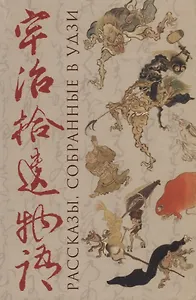 宇治拾遺物語
РАССКАЗЫ, СОБРАННЫЕ В УДЗИ